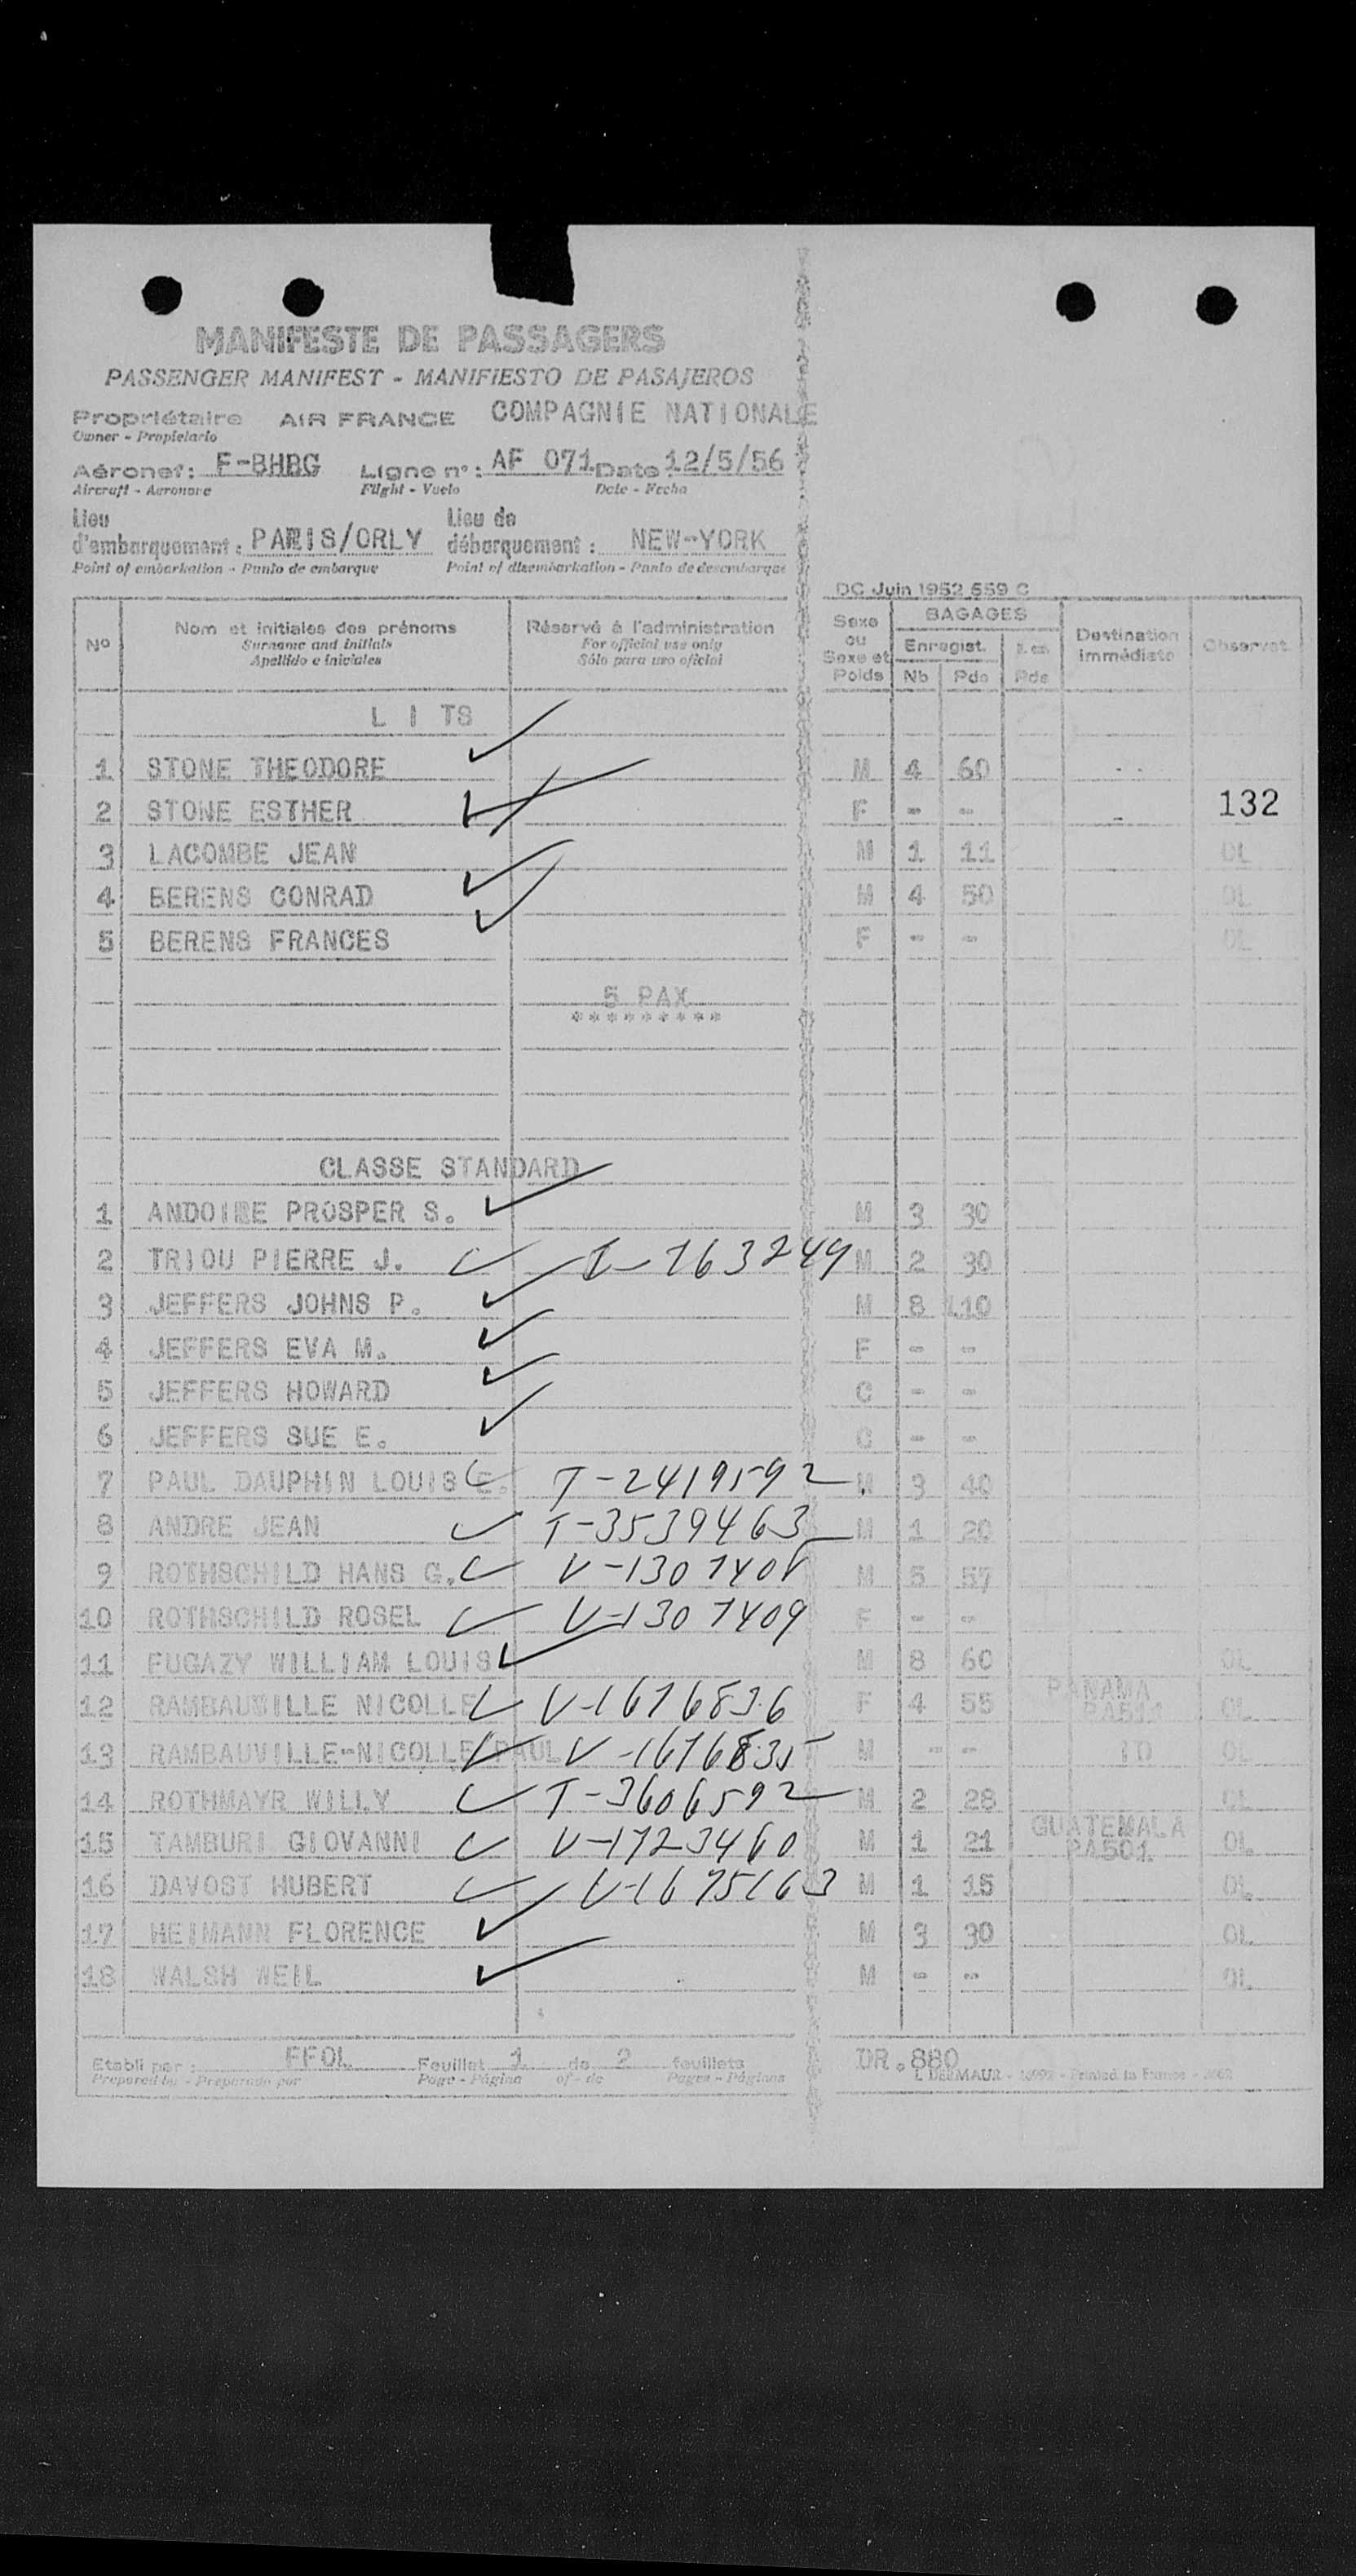 MANIFESTE DE PASSAGERS
PASSENGER MANIFEST - MANIFIESTO DE PASAJEROS
Propriétaire AIR FRANCE COMPAGNIE NATIONALE
Owner - Propietario
Aéronef: F-BHBG Ligne n°: AF 071 Date 12/5/56
Aircraft - Aeronave Flight - Vuelo Date - Fecha
Lieu d'embarquement: PARIS/ORLY Lieu de débarquement: NEW-YORK
Point of embarkation - Punto de embarque Point of disembarkation - Punto de desembarque
DC Juin 1952 559 C
N° Nom et initiales des prénoms Réservé à l'administration Sexe ou Sexe et Poids BAGAGES Destination immédiate Observat.
Surname and initials For official use only Enregist.
Apellido e iniciales Sólo para uso oficial Nb Pds Pds
L I TS
1 STONE THEODORE M 4 60
2 STONE ESTHER F - - 132
3 LACOMBE JEAN M 1 11 OL
4 BERENS CONRAD M 4 50 OL
5 BERENS FRANCES F - - OL
5 PAX
*********
CLASSE STANDARD
1 PROSPER S. M 3 30
2 TRIOU PIERRE J. 763249 M 2 30
3 JEFFERS JOHNS P. M 8 110
4 JEFFERS EVA M. F - -
5 JEFFERS HOWARD C - -
6 JEFFERS SUE E. C - -
7 PAUL DAUPHIN LOUIS E. T-2419592 M 3 40
8 ANDRE JEAN T-3539463 M 1 20
9 ROTHSCHILD HANS G. V-1307408 M 5 57
10 ROTHSCHILD ROSEL V-1307409 F - -
11 FUGAZY WILLIAM LOUIS M 8 60 OL
12 RAMBAUVILLE NICOLLE V-1676836 F 4 55 PANAMA OL
13 RAMBAUVILLE-NICOLLE PAUL V-1676835 M - - ID OL
14 ROTHMAYR WILLY T-3606592 M 2 28 OL
15 TAMBURI GIOVANNI V-1723460 M 1 21 GUATEMALA PA501 OL
16 DAVOST HUBERT V-1675163 M 1 15 OL
17 HEIMANN FLORENCE M 3 30 OL
18 WALSH WEIL M - - OL
Etabli par: FFOL Feuillet 1 de 2 feuillets DR.880
Prepared by - Preparado por Page - Página of - de Pages - Páginas Printed in France